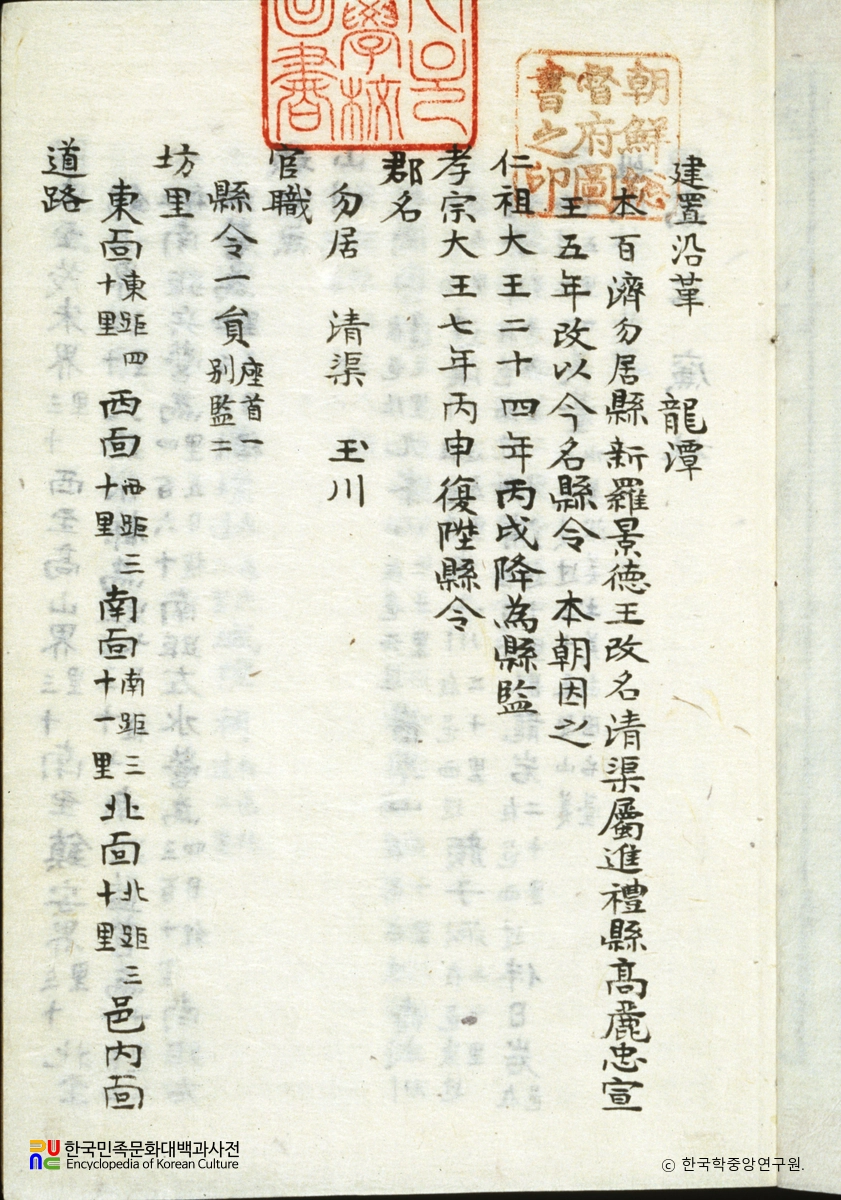 學校
圖書
朝鮮總
督府圖
書之印
建置沿革 龍潭
本百濟勿居縣新羅景德王改名清渠屬進禮縣高麗忠宣
王五年改以今名縣令 本朝因之
仁祖大王二十四年丙戌降為縣監
孝宗大王七年丙申復陞縣令
郡名
勿居 清渠 玉川
官職
縣令一員 座首一 別監二
坊里
東面 東距四十里 西面 西距三十里 南面 南距三十一里 北面 北距三十里 邑内面
道路
한국민족문화대백과사전
Encyclopedia of Korean Culture
© 한국학중앙연구원.